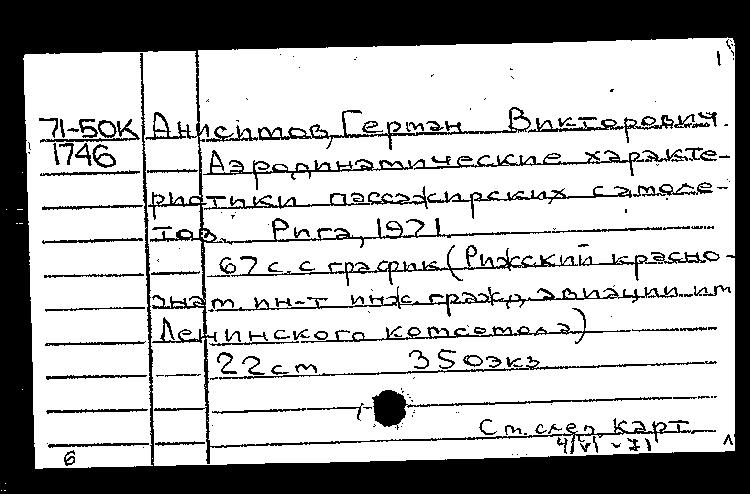 1
71-50К Анисимов, Герман Викторович.
1746 Аэродинамические характе-
ристики пассажирских самоле-
тов. Рига, 1971.
67 с. с график (Рижский красно-
знам. ин-т инж. гражд. авиации им
Ленинского комсомола)
22 см. 350 экз
См. след. карт.
4/VI - 71
6